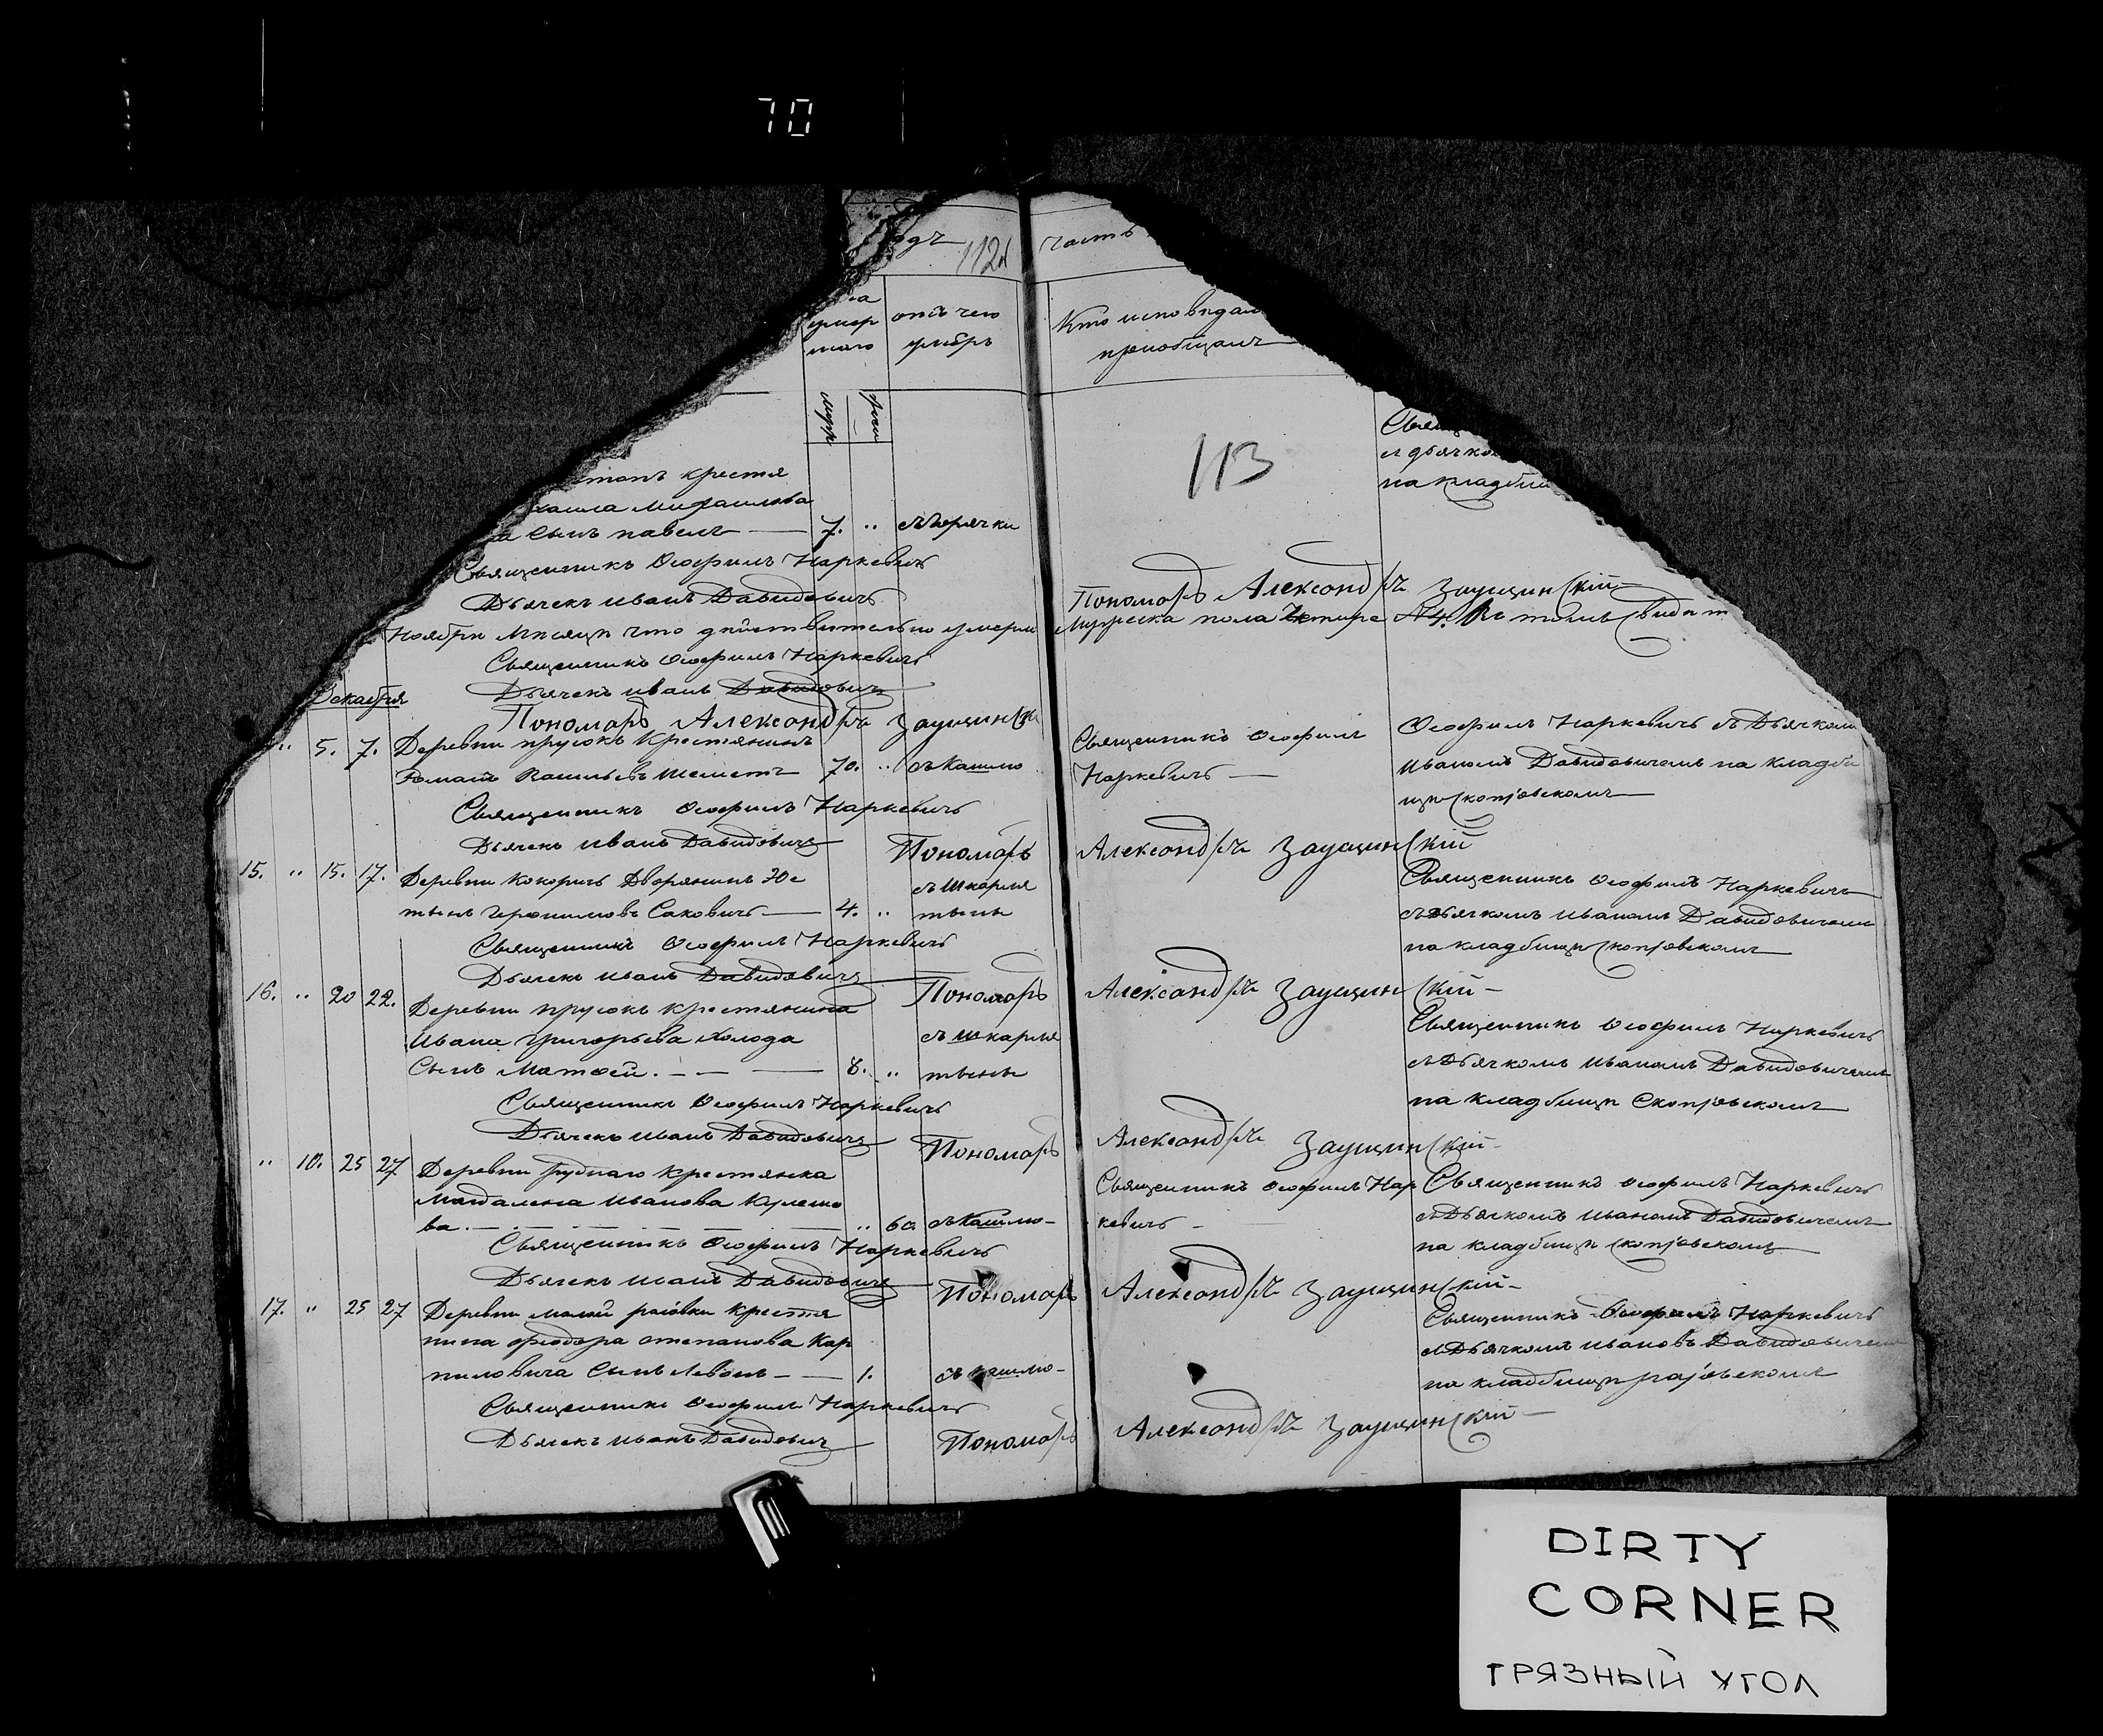 70
одъ
112
умер
шаго
отъ чего
умеръ
муж
жен
крестья
Михайлова
сынъ павелъ — 7. " съ горячки
Священникъ Ософилъ Наркевичъ
Дьячекъ иванъ Давидовичъ
Ноября Месяца что действительно умерли
Священникъ Ософилъ Наркевичъ
Дьячекъ иванъ Давидовичъ
Декабря
Пономаръ Александръ Заущинскій
" 5. 7. Деревни прусокъ Крестянинъ
Романъ Васильевъ Шеметъ 70. " съ Кашлю
Священникъ Ософилъ Наркевичъ
Дьячекъ иванъ Давидовичъ Пономаръ
15. " 15. 17. Деревни Кокоричъ Дворянинъ Юс
тынъ Иеронимовъ Саковичъ — 4. " съ шкарля
тыны
Священникъ Ософилъ Наркевичъ
Дьячекъ иванъ Давидовичъ Пономаръ
16. " 20 22. Деревни прусокъ крестянина
Ивана григорьева холода
сынъ Матоей. — — 8. " съ шкарля
тыны
Священникъ Ософилъ Наркевичъ
Дьячекъ иванъ Давидовичъ Пономаръ
" 10. 25 27 Деревни руднаго крестянка
Магдалена иванова Кулешо
ва. — " 60. съ Кашлю-
Священникъ Ософилъ Наркевичъ
Дьячекъ иванъ Давидовичъ Пономаръ
17. " 25 27 Деревни малой раіовки крестья
нина феодора степанова Кар
пиловича сынъ Левонъ — 1. съ кашлю-
Священникъ Ософилъ Наркевичъ
Дьячекъ иванъ Давидовичъ Пономаръ
Часть
Кто исповедал
приобщалъ
113
Свящ
и дьячко
на кладби
Пономаръ Александръ Заущинскій
Мужеска пола Четыре №4. Въ томъ свидет
Священникъ Ософилъ
Наркевичъ —
Ософилъ Наркевичъ съ Дьячкомъ
иваномъ Давидовичемъ на кладби
ще скопіовскомъ
Александръ Заущинскій
Священникъ Ософилъ Наркевичъ
съ Дьячкомъ иваномъ Давидовичемъ
на кладбище скопіовскомъ
Александръ Заущинскій-
Священникъ Ософилъ Наркевичъ
съ Дьячкомъ иваномъ Давидовичемъ
на кладбище Скопіовскомъ
Александръ Заущинскій-
Священникъ Ософилъ Нар
кевичъ -
Священникъ Ософилъ Наркевичъ
съ Дьячкомъ иваномъ Давидовичемъ
на кладбище скопіовскомъ
Александръ Заущинскій-
Священникъ Ософилъ Наркевичъ
съ Дьячкомъ ивановъ Давидовичем
на кладбище раіовскомъ
Александръ Заущинскій-
DIRTY
CORNER
ГРЯЗНЫЙ УГОЛ